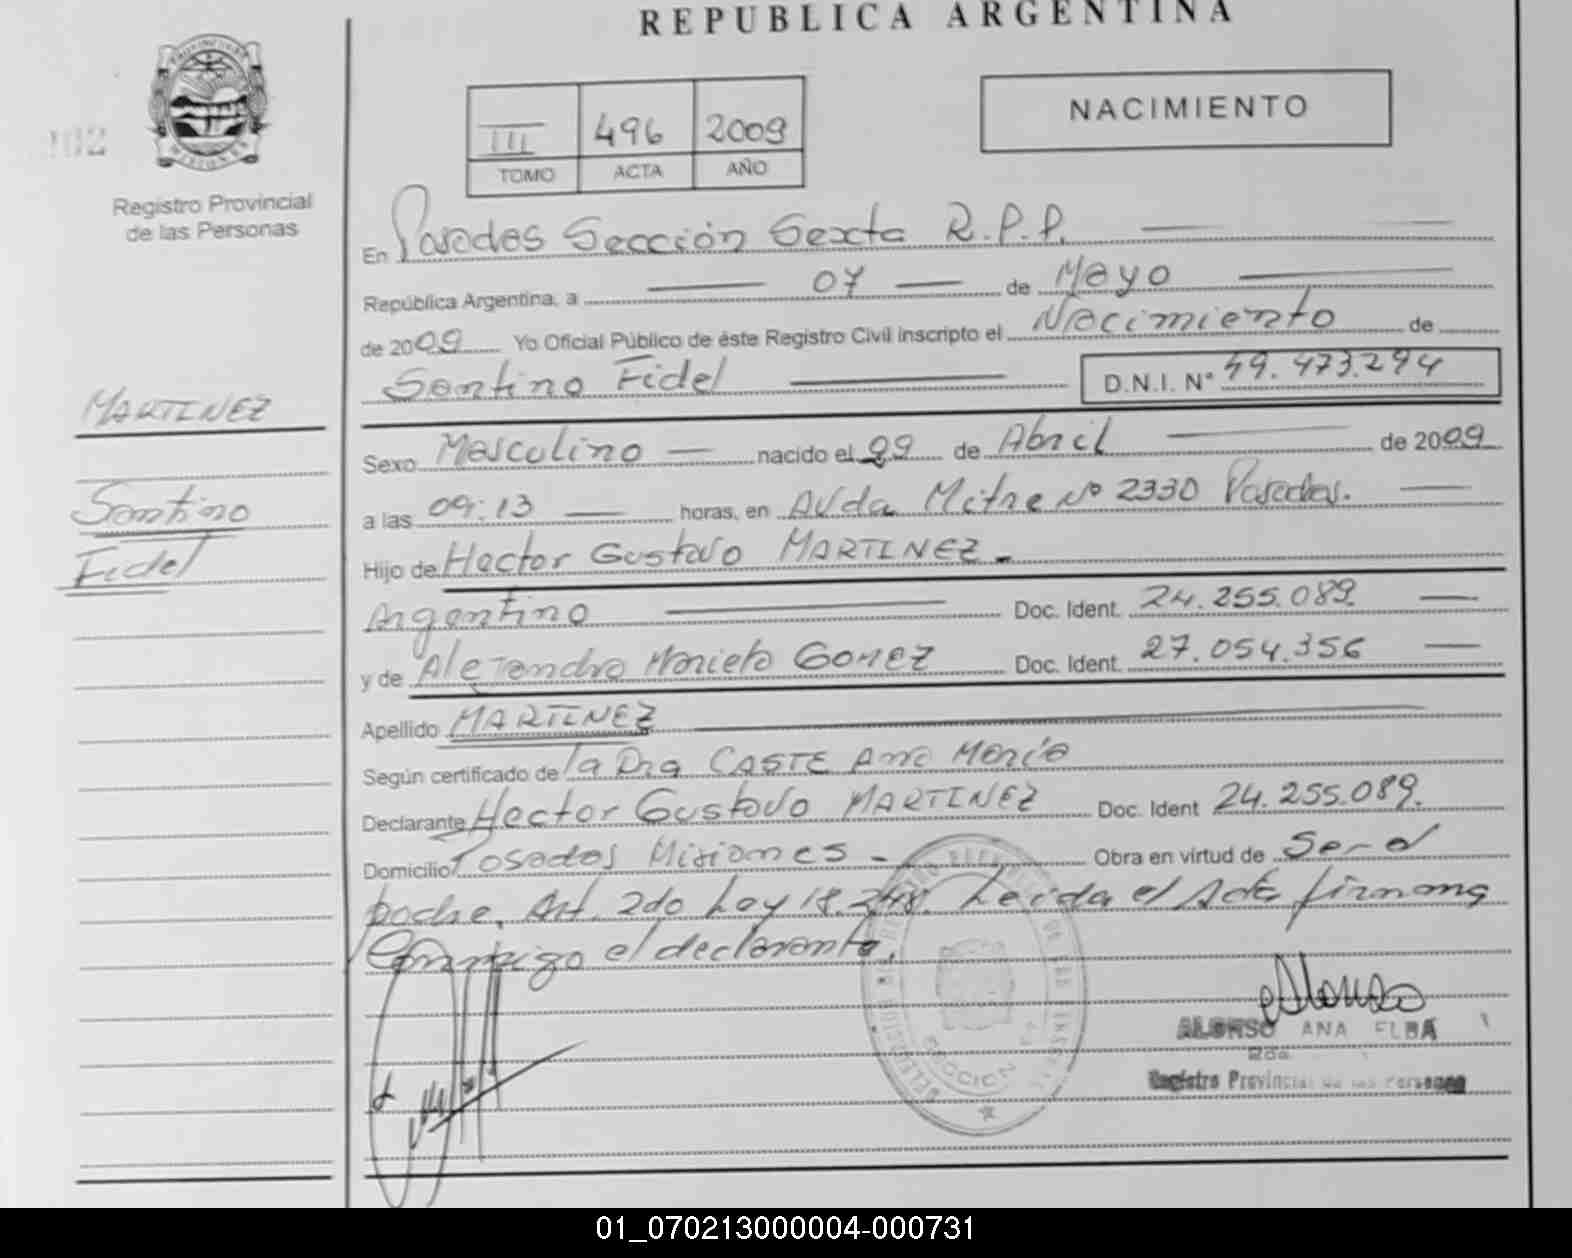 REPUBLICA ARGENTINA
PROVINCIA DE
MISIONES
102
Registro Provincial
de las Personas
III 496 2009
TOMO ACTA AÑO
NACIMIENTO
En Posadas Sección Sexta R.P.P.
República Argentina, a 07 de Mayo
de 2009 Yo Oficial Público de éste Registro Civil inscripto el Nacimiento de
Santino Fidel D.N.I. Nº 49.473.294
MARTINEZ
Santino
Fidel
Sexo Masculino nacido el 29 de Abril de 2009
a las 09:13 horas, en Avda Mitre Nº 2330 Posadas.
Hijo de Hector Gustavo MARTINEZ
Argentino Doc. Ident. 24.255.089
y de Alejandra Marieta GOMEZ Doc. Ident. 27.054.356
Apellido MARTINEZ
Según certificado de la Dra CASTE Ana María
Declarante Hector Gustavo MARTINEZ Doc. Ident 24.255.089.
Domicilio Posadas Misiones - Obra en virtud de Ser el
padre. Art. 2do Ley 18.248. Leida el Acta firmang
Conmigo el declarante.
SECCION
ALONSO ANA ELBA
Registro Provincial de las Personas
01_070213000004-000731